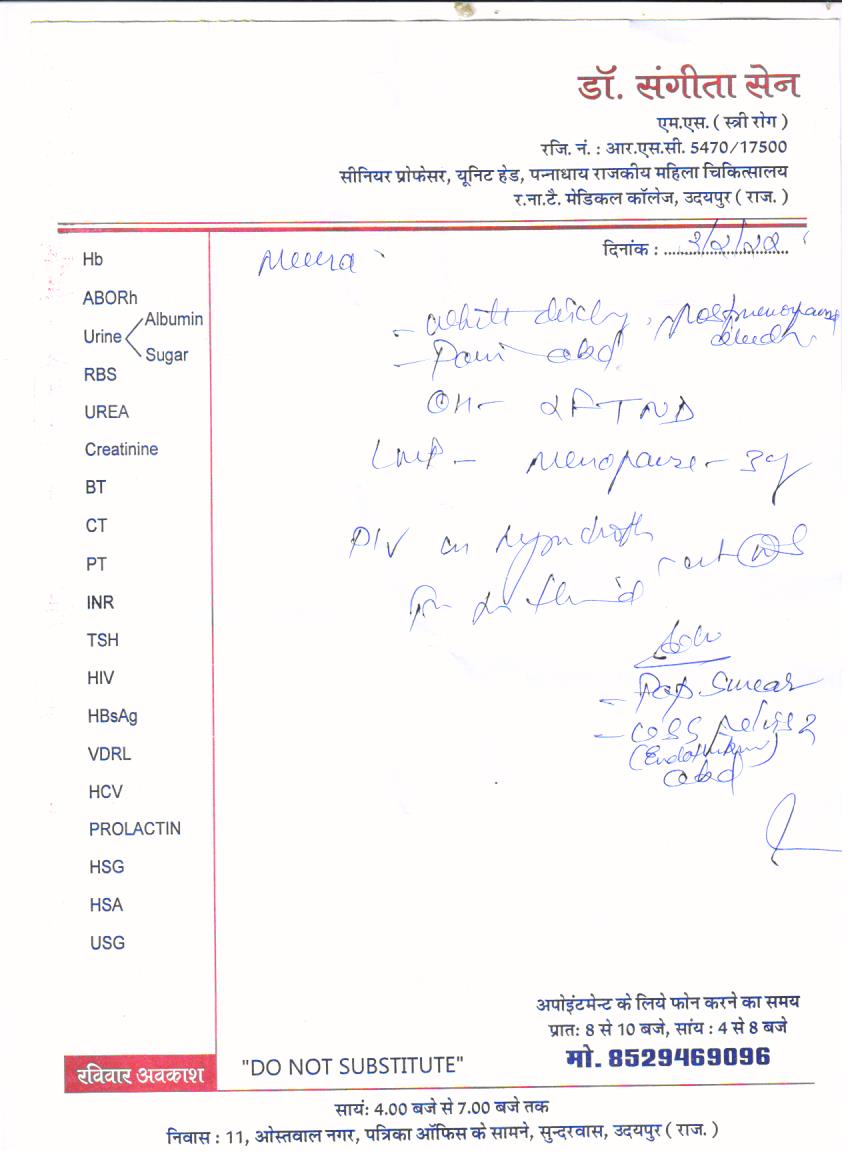 डॉ. संगीता सेन
एम.एस. ( स्त्री रोग )
रजि. नं. : आर.एस.सी. 5470/17500
सीनियर प्रोफेसर, यूनिट हेड, पन्नाधाय राजकीय महिला चिकित्सालय
र.ना.टै. मेडिकल कॉलेज, उदयपुर ( राज. )
दिनांक :
Meera
Hb
ABORh
Urine Albumin
Sugar
RBS
UREA
Creatinine
BT
CT
PT
INR
TSH
HIV
HBsAg
VDRL
HCV
PROLACTIN
HSG
HSA
USG
- white
- Pain abd
OH- 2FTND
LMP - Menopause - 3y
P/V
- Pap. Smear
abd
अपोइंटमेन्ट के लिये फोन करने का समय
प्रातः 8 से 10 बजे, सांय : 4 से 8 बजे
मो. 8529469096
रविवार अवकाश
"DO NOT SUBSTITUTE"
सायंः 4.00 बजे से 7.00 बजे तक
निवास : 11, ओस्तवाल नगर, पत्रिका ऑफिस के सामने, सुन्दरवास, उदयपुर ( राज. )